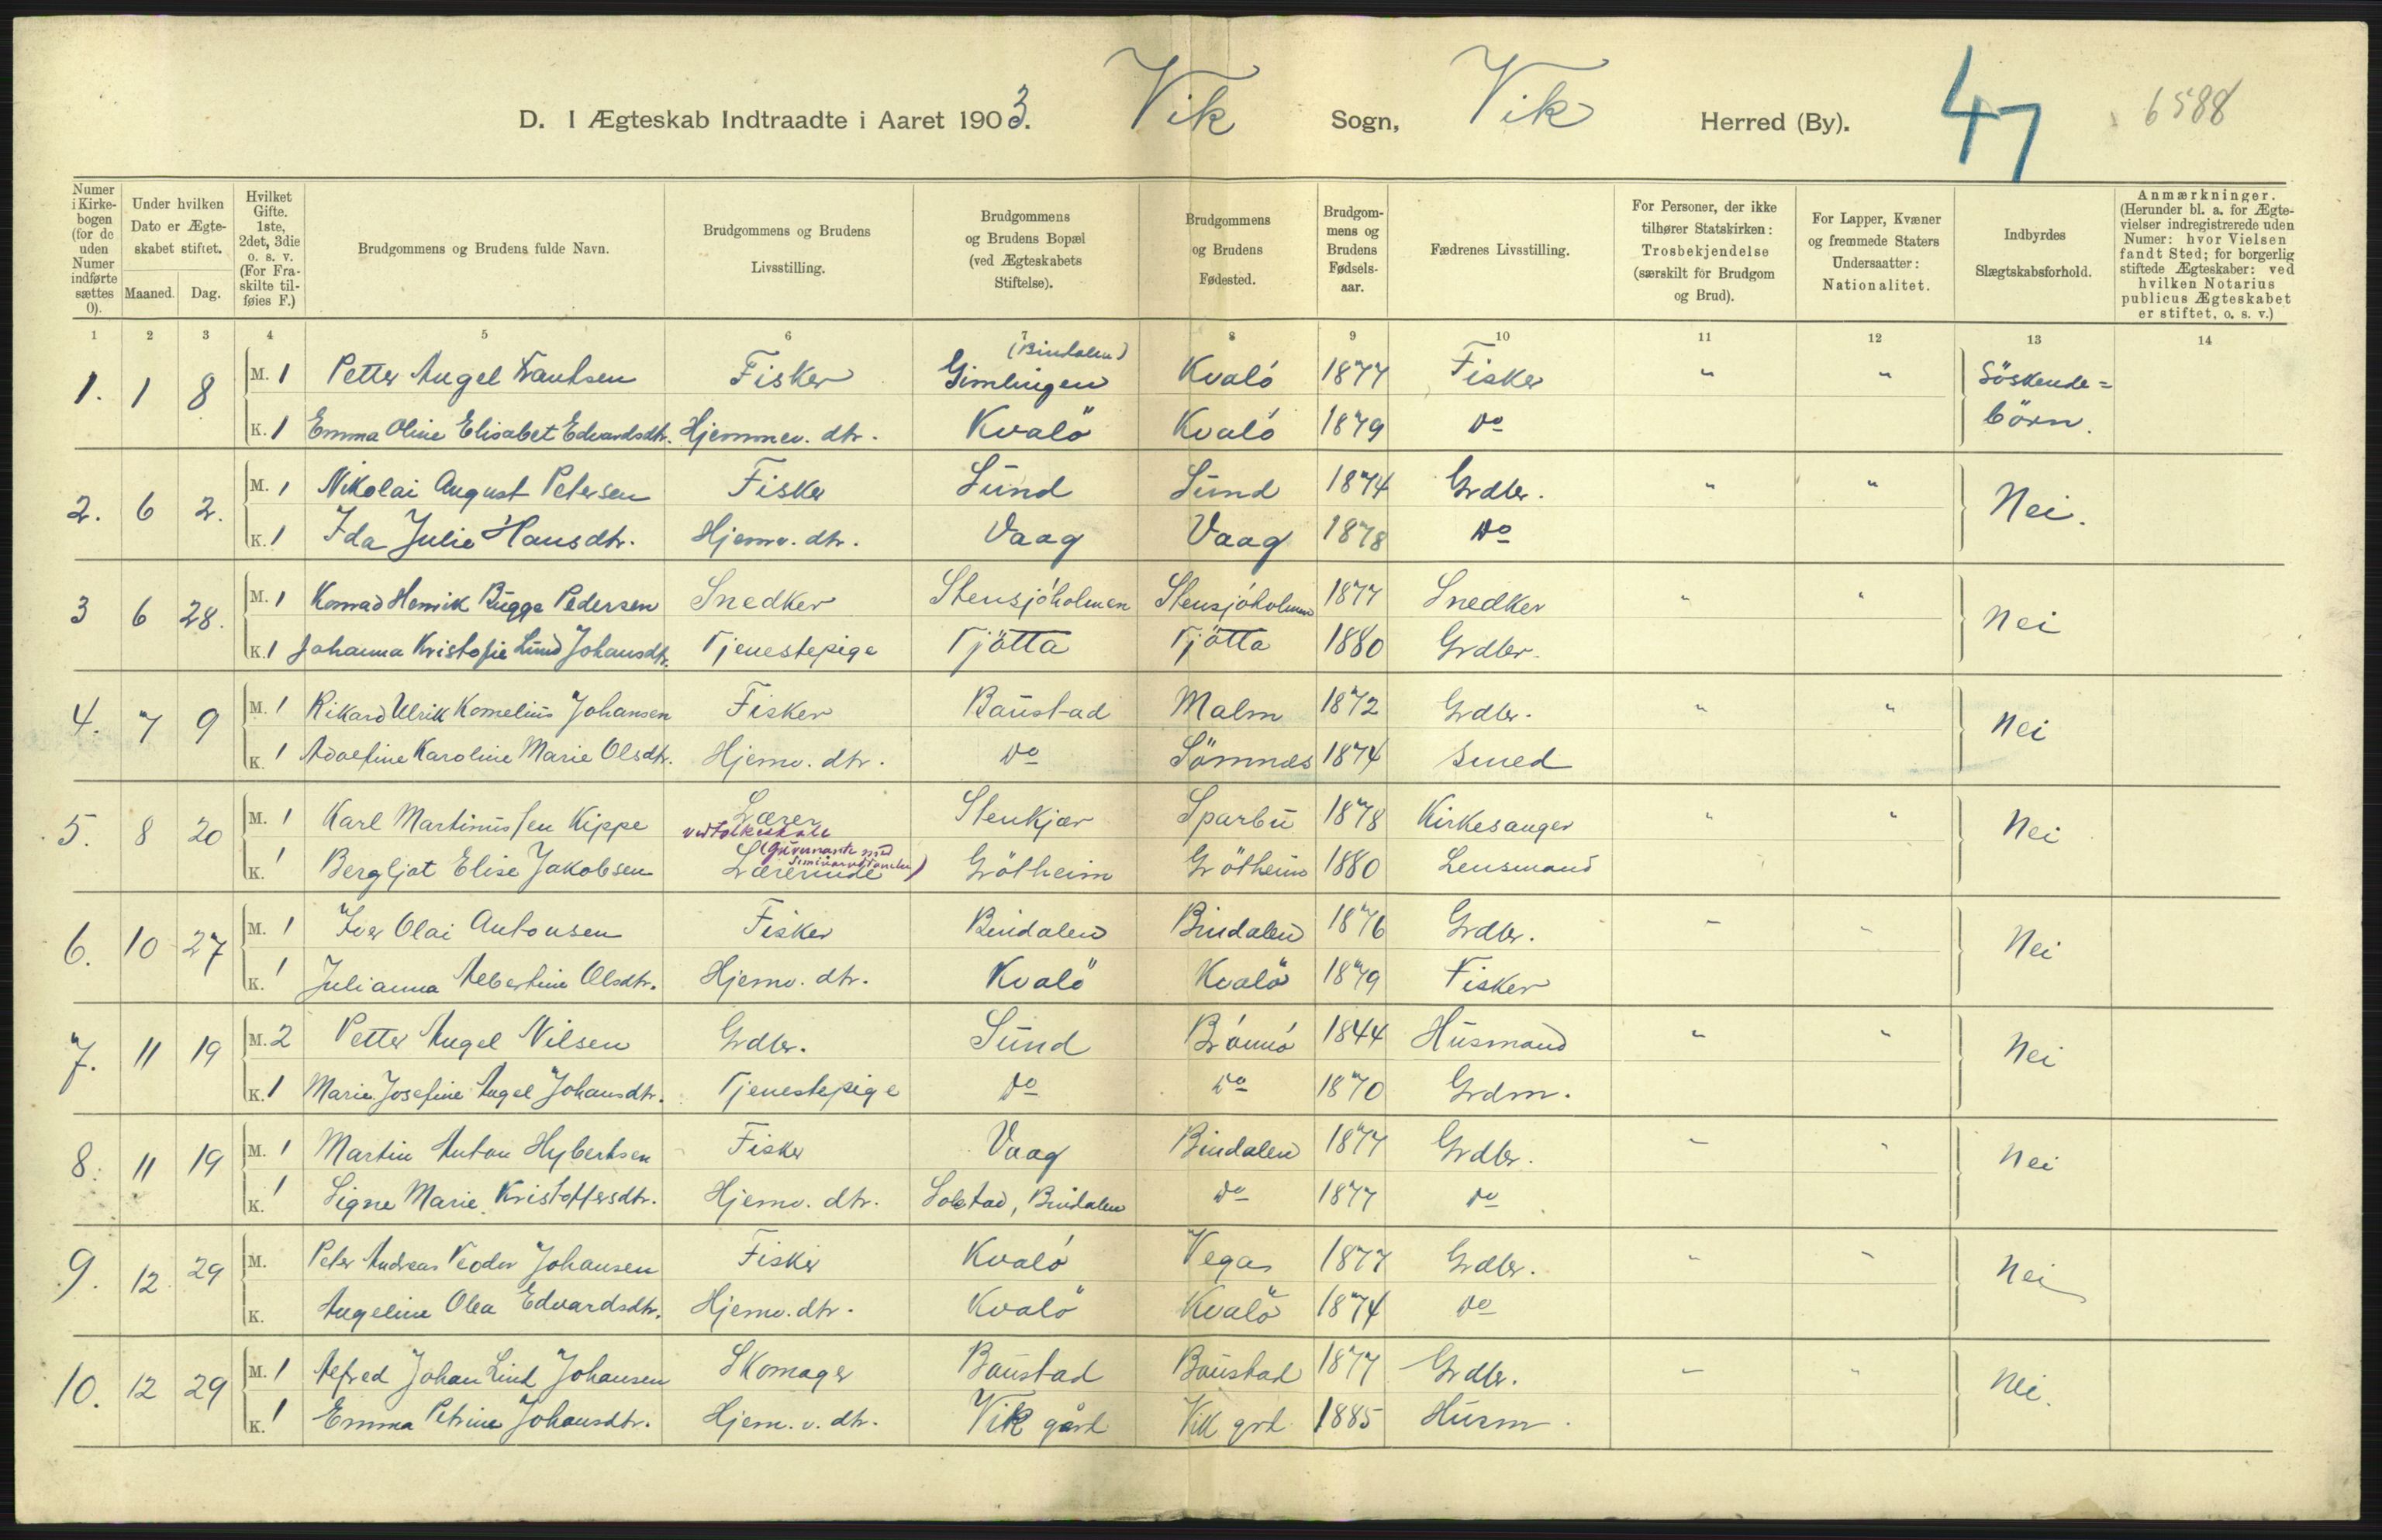 D. I Ægteskab Indtraadte i Aaret 1903. Vik Sogn, Vik Herred (By). 47 6588
Numer i Kirkebogen (for de uden Numer indførte sættes 0).
Under hvilken Dato er Ægteskabet stiftet.
Maaned. Dag.
Hvilket Gifte. 1ste, 2det, 3die o. s. v. (For Fraskilte tilføies F.)
Brudgommens og Brudens fulde Navn.
Brudgommens og Brudens Livsstilling.
Brudgommens og Brudens Bopæl (ved Ægteskabets Stiftelse).
Brudgommens og Brudens Fødested.
Brudgommens og Brudens Fødselsaar.
Fædrenes Livsstilling.
For Personer, der ikke tilhører Statskirken: Trosbekjendelse (særskilt for Brudgom og Brud).
For Lapper, Kvæner og fremmede Staters Undersaatter: Nationalitet.
Indbyrdes Slægtskabsforhold.
Anmærkninger. (Herunder bl. a. for Ægtevielser indregistrerede uden Numer: hvor Vielsen fandt Sted; for borgerlig stiftede Ægteskaber: ved hvilken Notarius publicus Ægteskabet er stiftet, o. s. v.)
1 2 3 4 5 6 7 8 9 10 11 12 13 14
1. 1 8 M. 1 Petter Angel Frantsen Fisker (Bindalen) Gimlingen Kvaló 1877 Fisker " " Söskende=
K. 1 Emma Oline Elisabet Edvardsdtr. Hjemmev. dtr. Kvalö Kvaló 1879 Do börn.
2. 6 2. M. 1 Nikolai August Petersen Fisker Sund Sund 1874 Grdbr. " " Nei.
K. 1 Ida Julie Hansdtr. Hjemv. dtr. Vaag Vaag 1878 Do
3 6 28. M. 1 Konrad Henrik Bugge Pedersen Snedker Stensjóholmen Stensjóholmen 1877 Snedker " " Nei
K. 1 Johanna Kristofie Lund Johansdtr. Tjenestepige Tjötta Tjötta 1880 Grdbr.
4. 7 9 M. 1 Rikard Ulrik Kornelius Johansen Fisker Baustad Malm 1872 Grdbr. " " Nei
K. 1 Adolfine Karoline Marie Olsdtr. Hjemv. dtr. Do Sömnæs 1874 Smed
5. 8 20 M. 1 Karl Martinussen Kippe Lærer ved folkeskole Stenkjær Sparbu 1878 Kirkesanger " " Nei
K. 1 Bergljot Elise Jakobsen Lærerinde (guvernante med Seminarutdannelse) Grötheim Grötheim 1880 Lensmand
6. 10 27 M. 1 Iver Olai Antonsen Fisker Bindalen Bindalen 1876 Grdbr. " " Nei
K. 1 Julianna Albertine Olsdtr. Hjemv. dtr. Kvalö Kvalö 1879 Fisker
7. 11 19 M. 2 Petter Angel Nilsen Grdbr. Sund Brónnó 1844 Husmand " " Nei
K. 1 Marie Josefine Angel Johansdtr. Tjenestepige Do Do 1870 Grdm.
8. 11 19 M. 1 Martin Anton Hybertsen Fisker Vaag Bindalen 1877 Grdbr. " " Nei
K. 1 Signe Marie Kristoffersdtr. Hjemv. dtr. Solstad, Bindalen Do 1877 Do
9. 12. 29 M. Peter Andreas Teodor Johansen Fisker Kvaló Vega 1877 Grdbr. " " Nei
K. Angeline Olea Edvardsdtr. Hjemv. dtr. Kvalö Kvalö 1874 Do
10. 12 29 M. 1 Alfred Johan Lind Johansen Skomager Baustad Baustad 1877 Grdbr. " " Nei.
K. 1 Emma Petrine Johansdtr. Hjem. v. dtr. Vik gård Vik grd 1885 Husm.